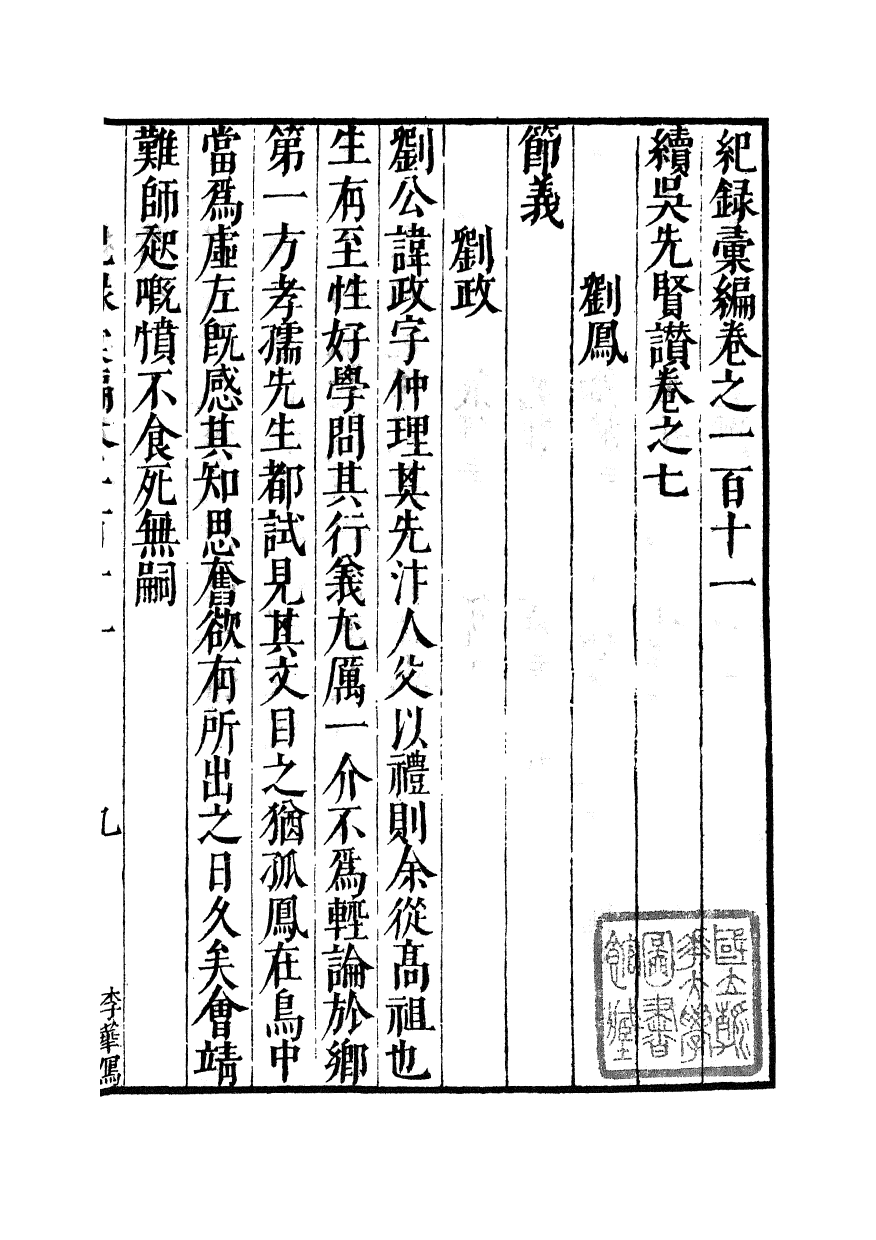 紀録彙編卷之一百十一
續吳先賢讃卷之七
劉鳳
節義
劉政
劉公諱政字仲理其先汴人父以禮則余從髙祖也
生有至性好學問其行義尤厲一介不爲輕論於鄉
第一方孝孺先生都試見其文目之猶孤鳳在鳥中
當爲虛左旣感其知思奮欲有所出之日久矣會靖
難師起嘅憤不食死無嗣
九
李華寫
國立
清華大學
圖書
館藏